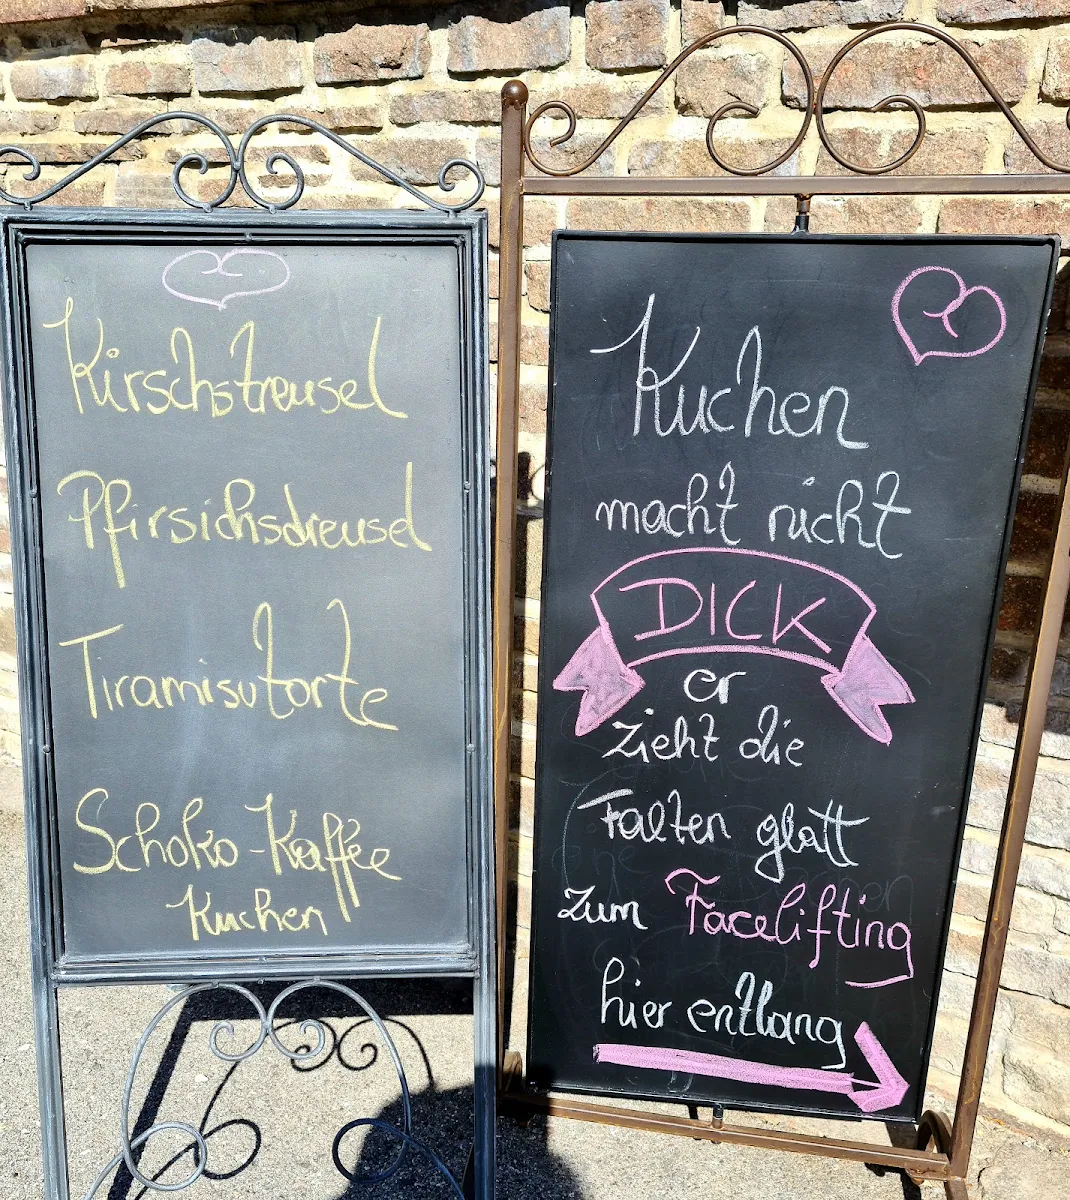 Kirschstreusel
Pfirsichstreusel
Tiramisutorte
Schoko-Kaffee
Kuchen
Kuchen
macht nicht
DICK
er
zieht die
Falten glatt
zum Facelifting
hier entlang